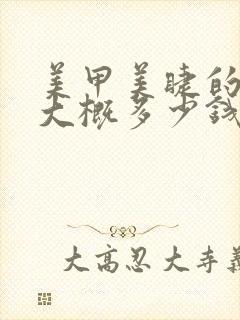 美甲美睫的
大概多少钱
大高忍大寺